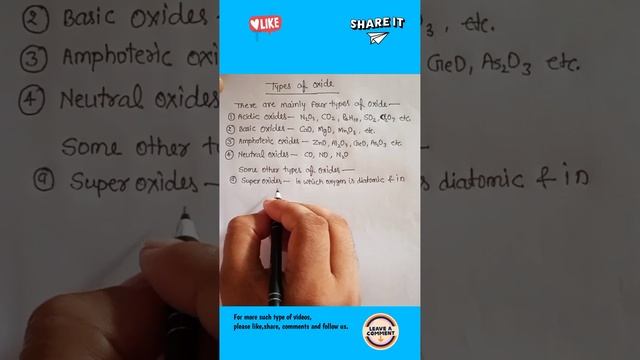 LIKE
SHARE IT
Types of oxide
There are mainly four types of oxide—
① Acidic oxides — N2O5, CO2, P4H10, SO2, Cl2O7 etc
② Basic oxides — CaO, MgO, MnO, etc.
③ Amphoteric oxides — ZnO, Al2O3, GeO, As2O3 etc.
④ Neutral oxides — CO, NO, N2O
Some other types of oxides —
Super oxides — in which oxygen is diatomic & in
② Basic oxides
③ Amphoteric oxi
④ Neutral oxides
Some other t
Super oxides —
, etc.
GeO, As2O3 etc.
s diatomic & in
For more such type of videos,
please like,share, comments and follow us.
LEAVE A
COMMENT